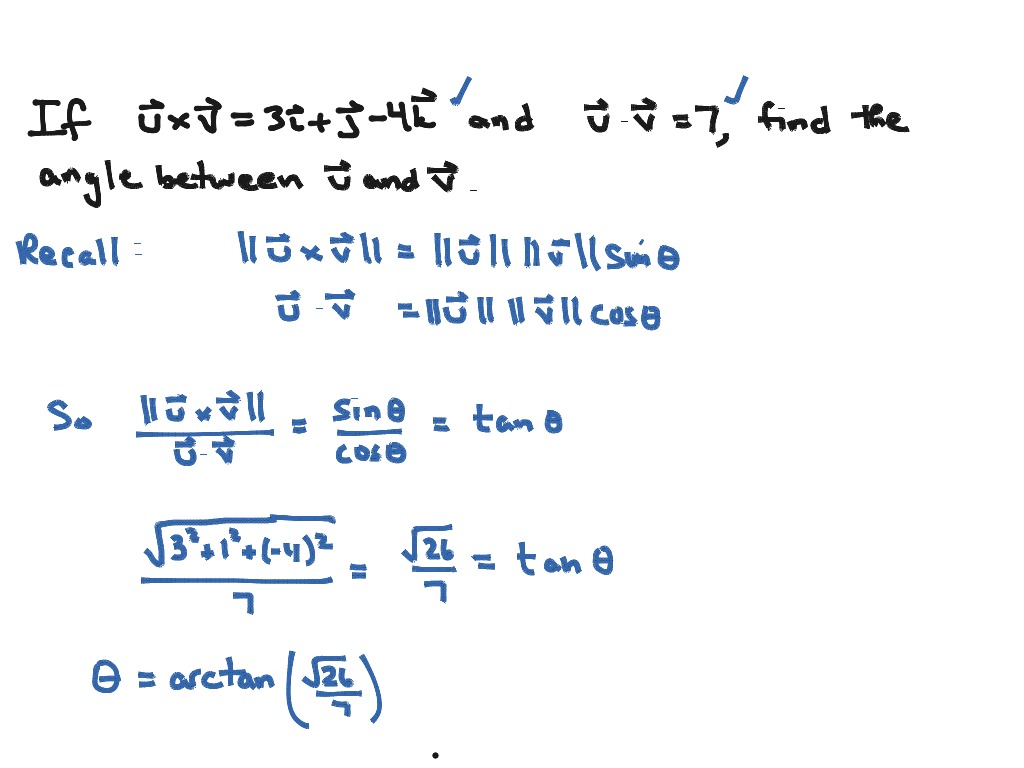 If u⃗ × v⃗ = 3i⃗ + j⃗ - 4k⃗ ✓ and u⃗ · v⃗ = 7, ✓ find the
angle between u⃗ and v⃗.
Recall: ||u⃗ × v⃗|| = ||u⃗|| ||v⃗|| sin θ
u⃗ · v⃗ = ||u⃗|| ||v⃗|| cos θ
So ||u⃗ × v⃗|| / u⃗ · v⃗ = sin θ / cos θ = tan θ
√(3² + 1² + (-4)²) / 7 = √26 / 7 = tan θ
θ = arctan (√26 / 7)